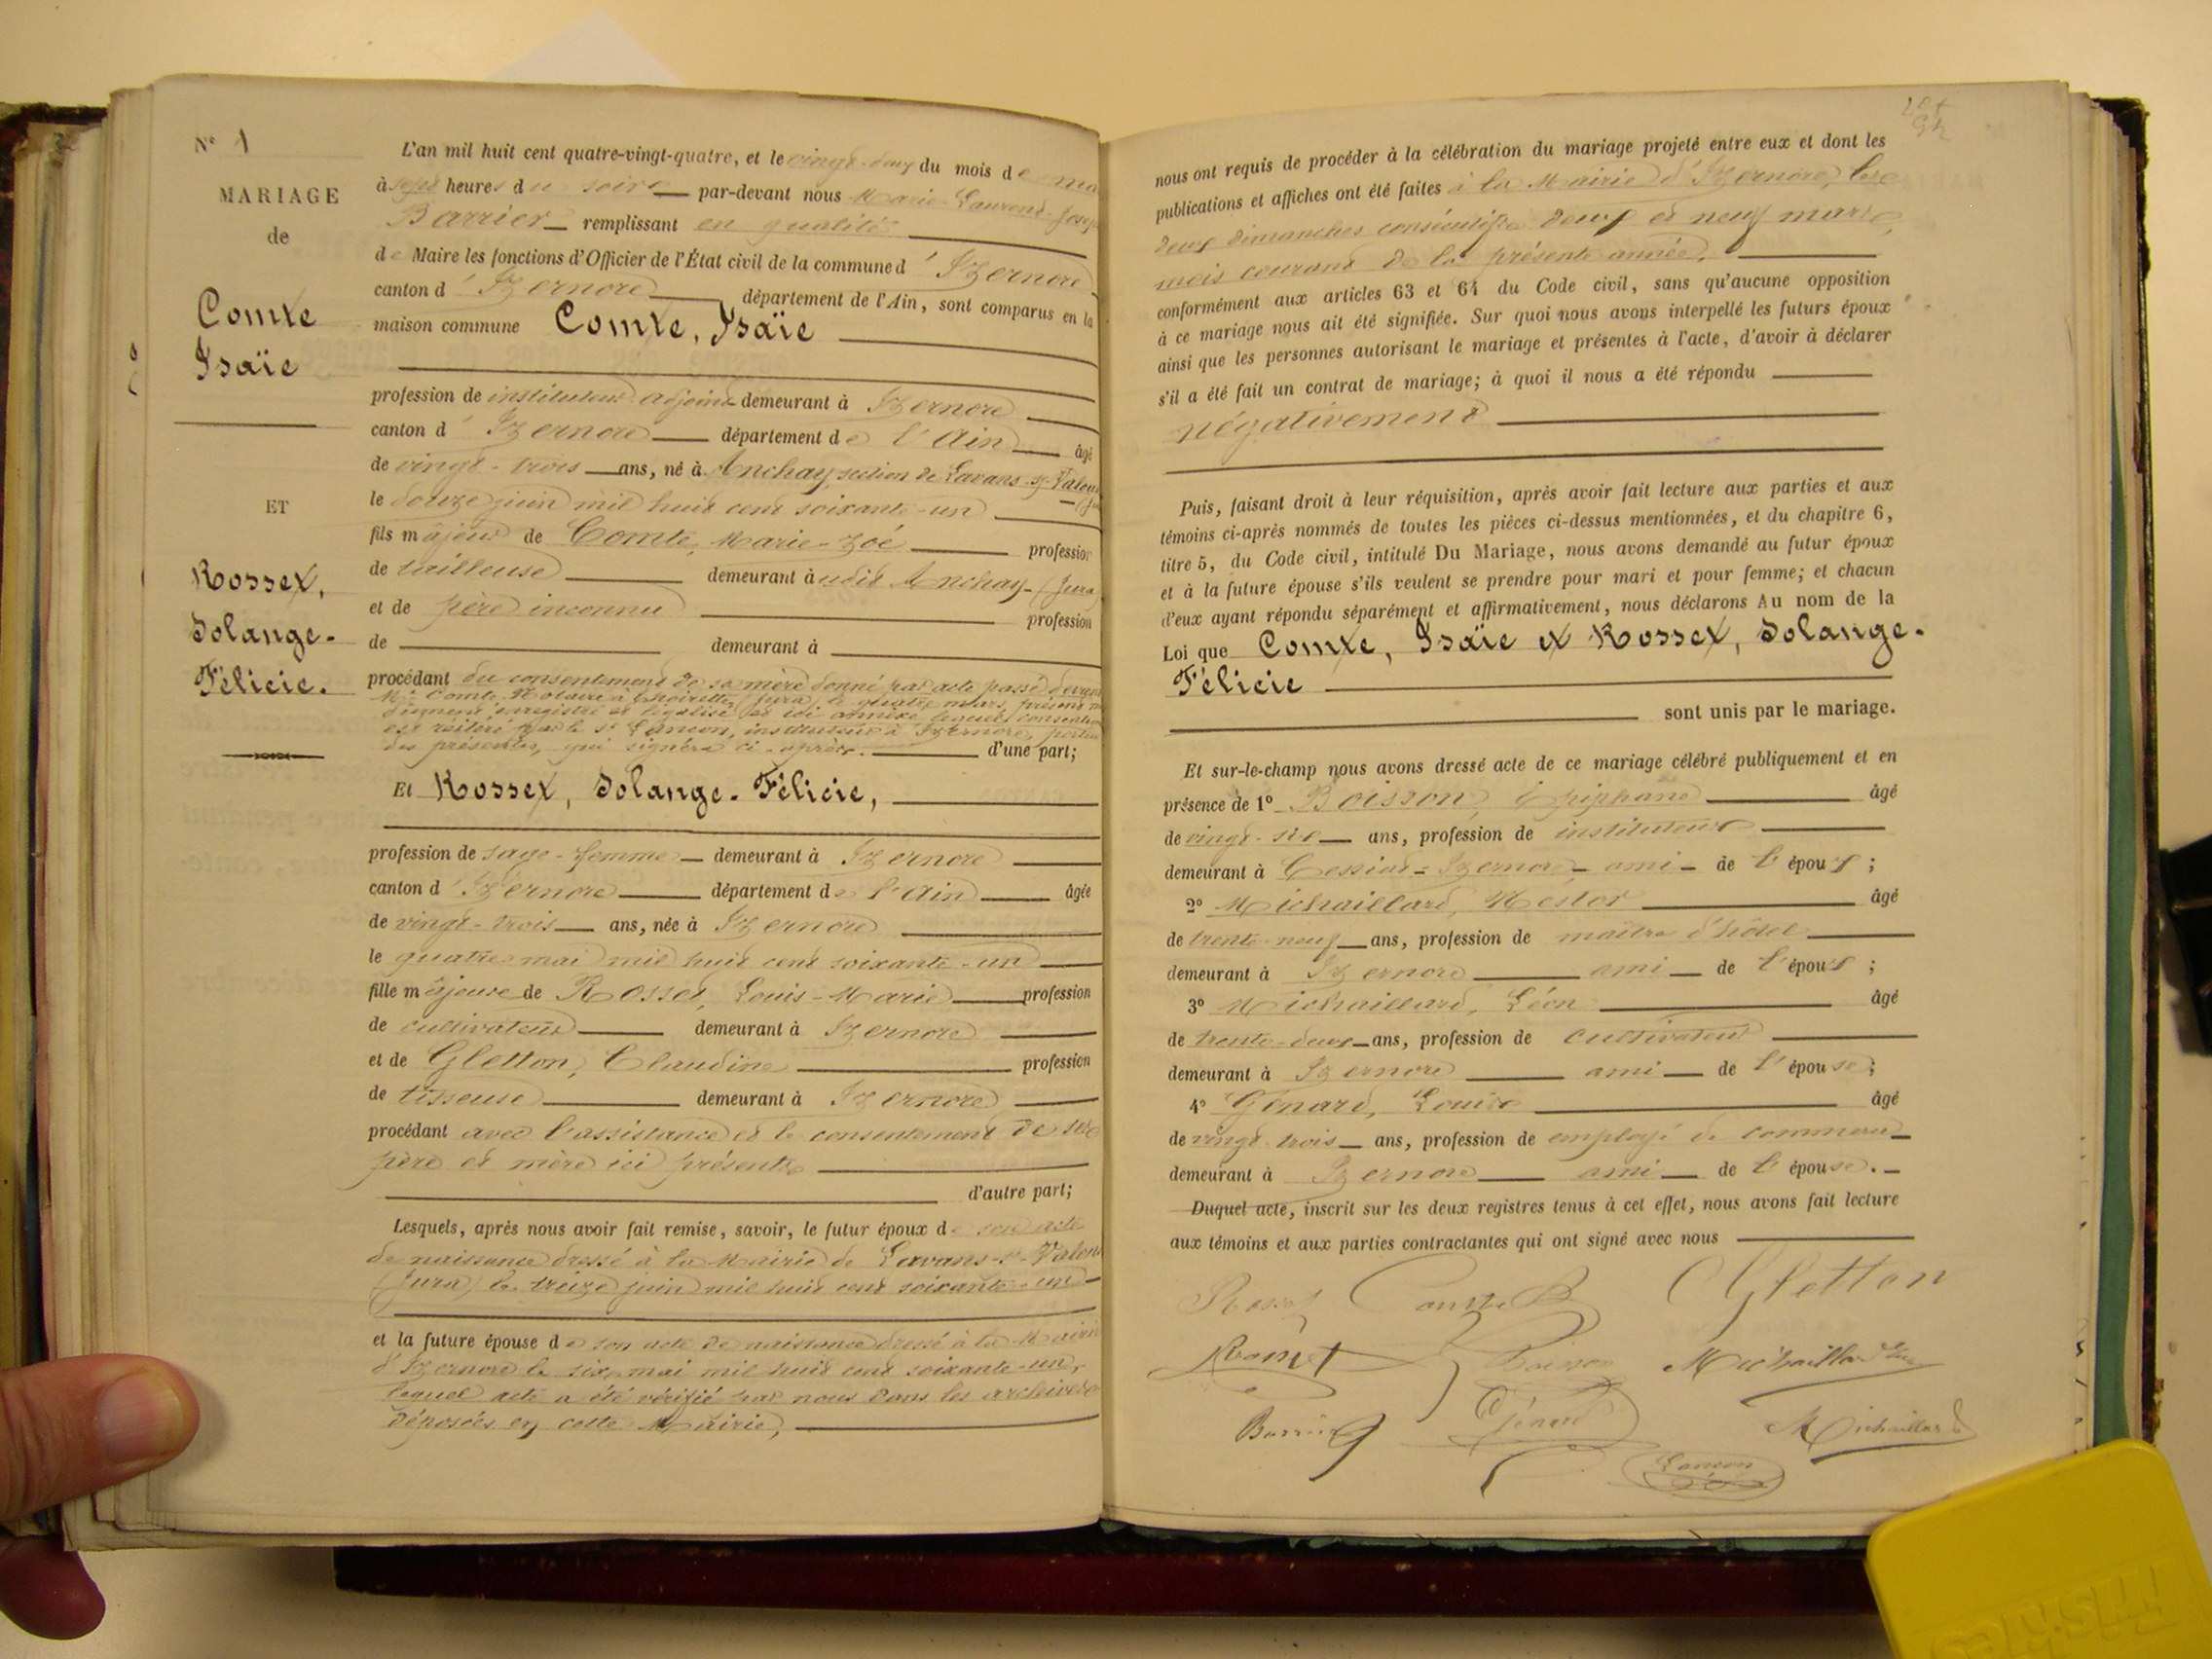 N° 1
MARIAGE
de
Comte
Isaïe
ET
Rosset,
Solange-
Félicie.
L'an mil huit cent quatre-vingt-quatre, et le vingt-deux du mois de
à sept heures du soir par-devant nous Marie Laurent
Barrier remplissant en qualité
de Maire les fonctions d'Officier de l'État civil de la commune d'Izernore
canton d'Izernore département de l'Ain, sont comparus en la
maison commune Comte, Isaïe
profession de instituteur adjoint demeurant à Izernore
canton d'Izernore département de l'Ain âgé
de vingt-trois ans, né à Anchay section de Lavans-sr-
le douze juin mil huit cent soixante-un
fils majeur de Comte, Marie-Zoé profession
de tailleuse demeurant audit Anchay (Jura)
et de père inconnu profession
de demeurant à
procédant du consentement de sa mère donné par acte passé
Me Comte, Notaire à Thoirette, Jura, le quatre mars, présent
dûment enregistré et légalisé et ici annexé, lequel
est réitéré par le sr Lançon, instituteur à Izernore,
des présentes, qui signera ci-après. d'une part;
Et Rosset, Solange-Félicie,
profession de sage-femme demeurant à Izernore
canton d'Izernore département de l'Ain âgée
de vingt-trois ans, née à Izernore
le quatre mai mil huit cent soixante-un
fille majeure de Rosset, Louis-Marie profession
de cultivateur demeurant à Izernore
et de Gletton, Claudine profession
de tisseuse demeurant à Izernore
procédant avec l'assistance et le consentement de ses
père et mère ici présents
d'autre part;
Lesquels, après nous avoir fait remise, savoir, le futur époux de son acte
de naissance dressé à la Mairie de Lavans-sr-
(Jura) le treize juin mil huit cent soixante-un
et la future épouse de son acte de naissance dressé à la Mairie
d'Izernore le six mai mil huit cent soixante-un,
lequel acte a été vérifié par nous dans les archives
déposées en cette Mairie,
nous ont requis de procéder à la célébration du mariage projeté entre eux et dont les
publications et affiches ont été faites à la Mairie d'Izernore, les
deux dimanches consécutifs deux et neuf mars,
mois courant de la présente année,
conformément aux articles 63 et 64 du Code civil, sans qu'aucune opposition
à ce mariage nous ait été signifiée. Sur quoi nous avons interpellé les futurs époux
ainsi que les personnes autorisant le mariage et présentes à l'acte, d'avoir à déclarer
s'il a été fait un contrat de mariage; à quoi il nous a été répondu
négativement
Puis, faisant droit à leur réquisition, après avoir fait lecture aux parties et aux
témoins ci-après nommés de toutes les pièces ci-dessus mentionnées, et du chapitre 6,
titre 5, du Code civil, intitulé Du Mariage, nous avons demandé au futur époux
et à la future épouse s'ils veulent se prendre pour mari et pour femme; et chacun
d'eux ayant répondu séparément et affirmativement, nous déclarons Au nom de la
Loi que Comte, Isaïe et Rosset, Solange-
Félicie
sont unis par le mariage.
Et sur-le-champ nous avons dressé acte de ce mariage célébré publiquement et en
présence de 1° Boisson, Epiphane âgé
de vingt-six ans, profession de instituteur
demeurant à Cessiat-Izernore ami de l'époux;
2° Michaillard, Nestor âgé
de trente-neuf ans, profession de maître d'hôtel
demeurant à Izernore ami de l'époux;
3° Michaillard, Léon âgé
de trente-deux ans, profession de cultivateur
demeurant à Izernore ami de l'épouse;
4° Génard, Louis âgé
de vingt-trois ans, profession de employé de commerce
demeurant à Izernore ami de l'épouse.
Duquel acte, inscrit sur les deux registres tenus à cet effet, nous avons fait lecture
aux témoins et aux parties contractantes qui ont signé avec nous
Rosset Comte Gletton
Boisson Michaillard
Barrier Génard Michaillard
Lançon